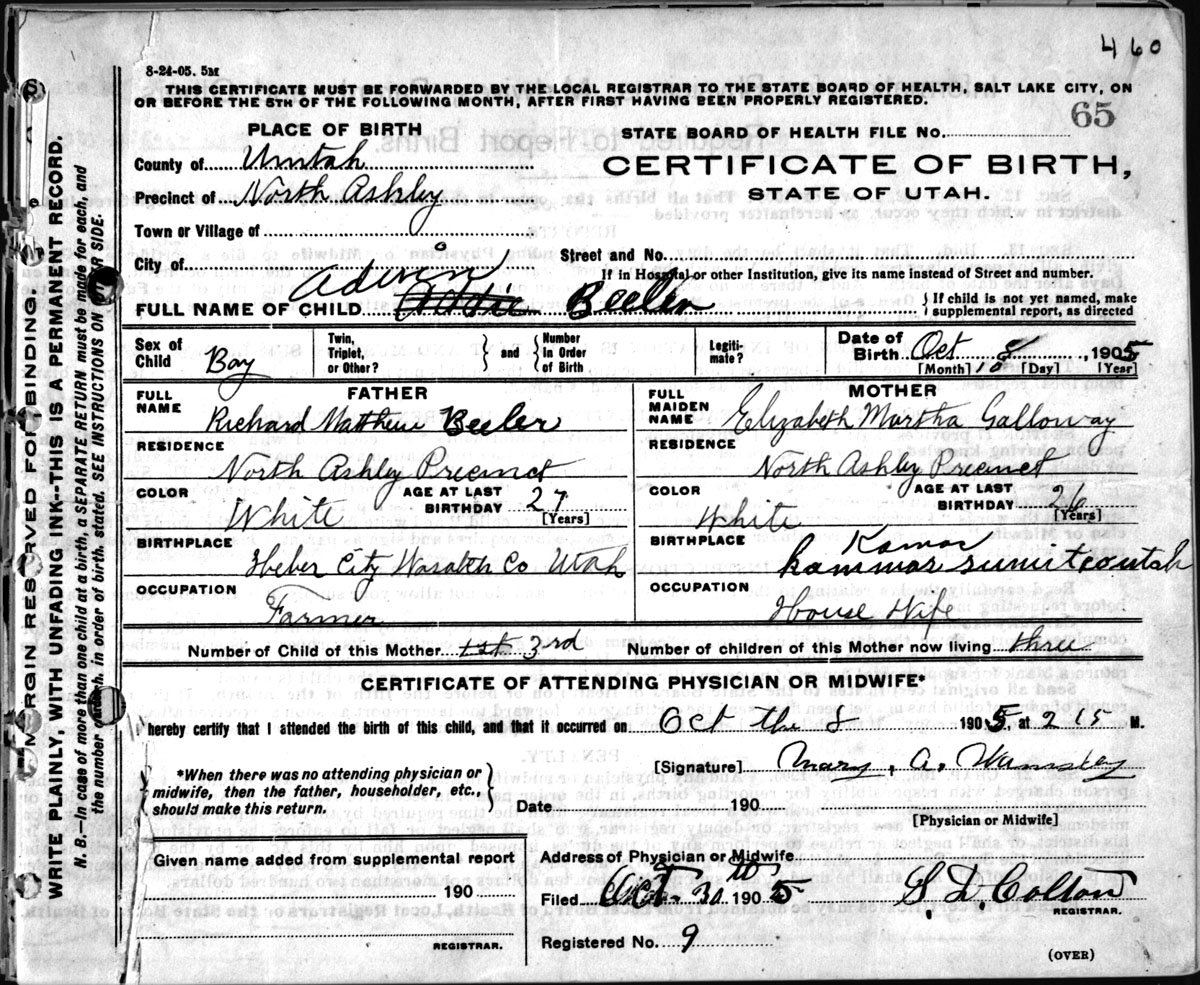 460
8-24-05. 5M
THIS CERTIFICATE MUST BE FORWARDED BY THE LOCAL REGISTRAR TO THE STATE BOARD OF HEALTH, SALT LAKE CITY, ON
OR BEFORE THE 5TH OF THE FOLLOWING MONTH, AFTER FIRST HAVING BEEN PROPERLY REGISTERED.
65
PLACE OF BIRTH
STATE BOARD OF HEALTH FILE No.
County of Uintah
CERTIFICATE OF BIRTH,
Precinct of North Ashley
STATE OF UTAH.
Town or Village of
City of
Street and No.
If in Hospital or other Institution, give its name instead of Street and number.
Adwin
FULL NAME OF CHILD Addie Beeler
{If child is not yet named, make
supplemental report, as directed
Sex of Child Boy
Twin, Triplet, or Other? } and { Number in Order of Birth
Legiti-mate?
Date of Birth Oct 8, 1905
[Month] 10 [Day] [Year]
FATHER
MOTHER
FULL NAME Richard Matthew Beeler
FULL MAIDEN NAME Elizabeth Martha Galloway
RESIDENCE North Ashley Precinct
RESIDENCE North Ashley Precinct
COLOR White AGE AT LAST BIRTHDAY 27 [Years]
COLOR White AGE AT LAST BIRTHDAY 26 [Years]
BIRTHPLACE Heber City Wasatch Co Utah
BIRTHPLACE Kamas
kammas sumit co utah
OCCUPATION Farmer
OCCUPATION House Wife
Number of Child of this Mother 1st 3rd
Number of children of this Mother now living three
CERTIFICATE OF ATTENDING PHYSICIAN OR MIDWIFE*
I hereby certify that I attended the birth of this child, and that it occurred on Oct the 8 1905. at 2 15 M.
*When there was no attending physician or
midwife, then the father, householder, etc.,
should make this return.
[Signature] Mary. A. Wamsley
Date 190
[Physician or Midwife]
Given name added from supplemental report
190
REGISTRAR.
Address of Physician or Midwife
Filed Oct. 30th 1905
S. D. Colton
REGISTRAR.
Registered No. 9
(OVER)
MARGIN RESERVED FOR BINDING
WRITE PLAINLY, WITH UNFADING INK--THIS IS A PERMANENT RECORD.
N. B.—In case of more than one child at a birth, a SEPARATE RETURN must be made for each, and
the number of each, in order of birth, stated. SEE INSTRUCTIONS ON OTHER SIDE.